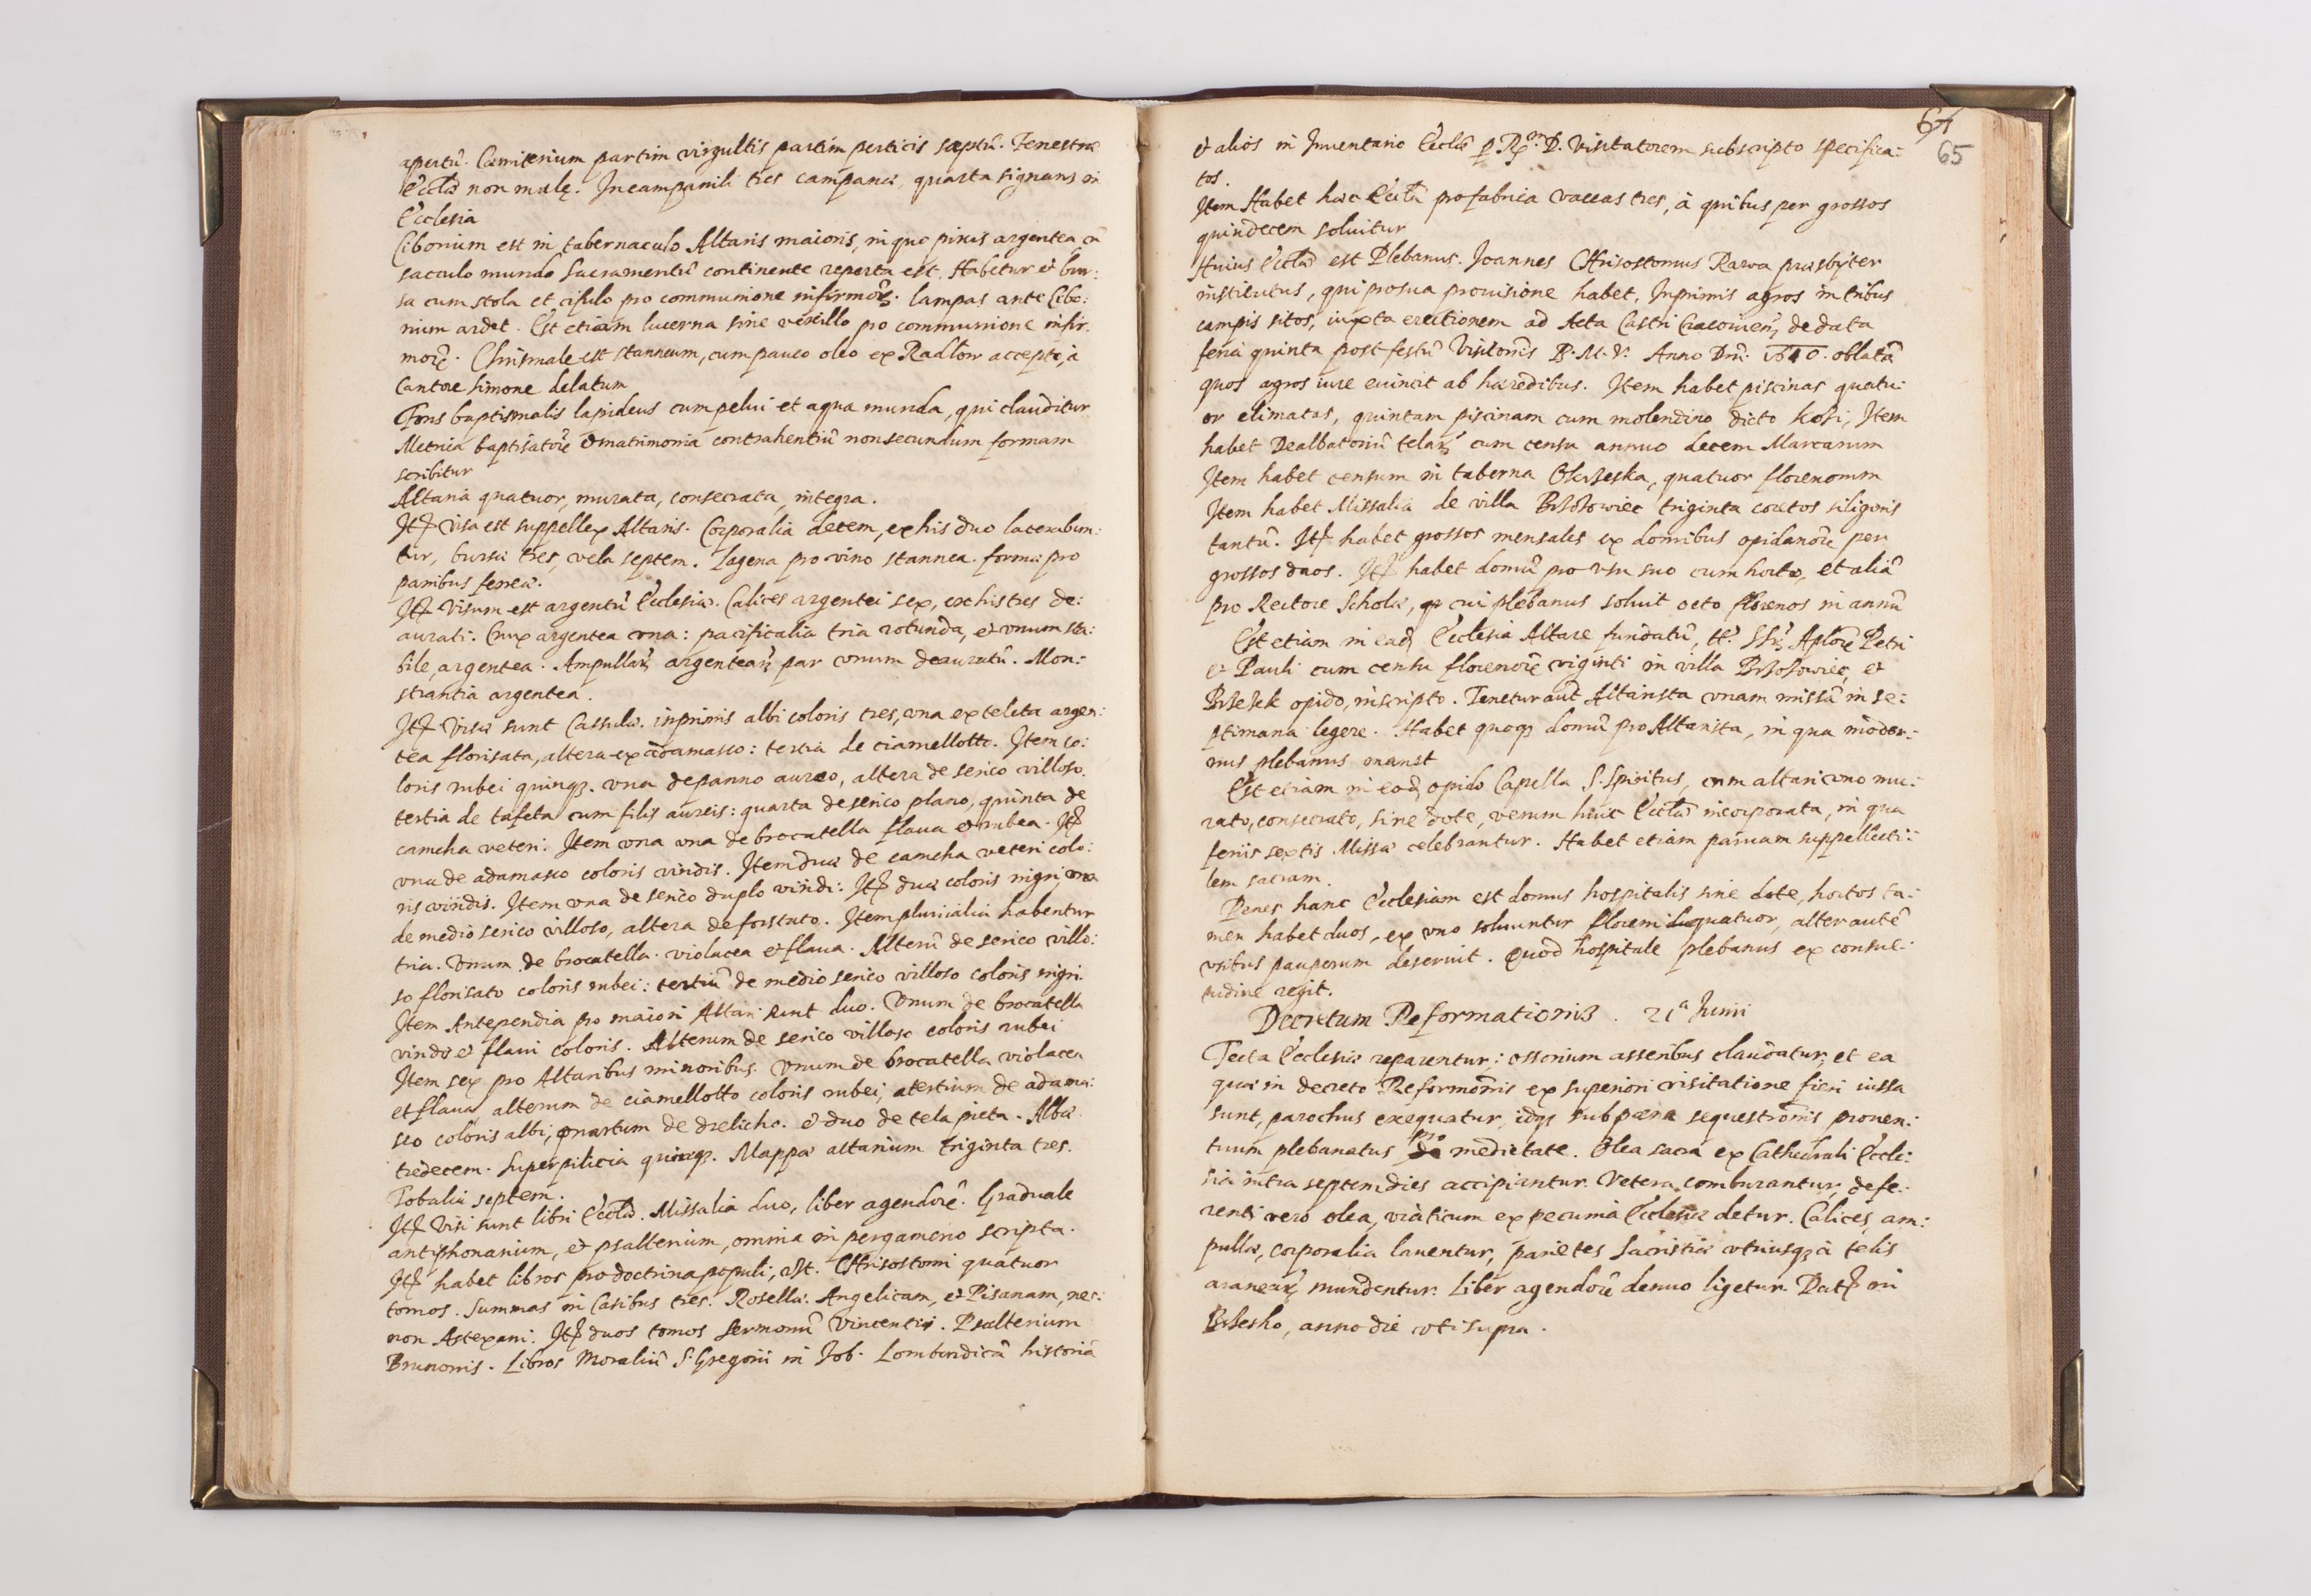 apertũ. Cœmiterium partim virgultis partim perticis sæptũ. Fenestræ
Eccłæ non malę. In campanili tres campanæ, quarta signans in
Ecclesia
Ciborium est in tabernaculo Altaris maioris, in quo pixis argentea cũ
sacculo mundo Sacramentũ continente reperta est. Habetur et bur:
sa cum stola et cifulo pro communione infirmorꝝ. lampas ante Cibo:
rium ardet. Est etiam lucerna sine vexillo pro communione infir:
morꝝ. Chrismale est stanneum, cum pauco oleo ex Radłow accepto, à
Cantore Simone delatum
Fons baptismalis lapideus cum pelui et aqua munda, qui clauditur
Metrica baptisatorꝝ & matrimonia contrahentiũ non secundum formam
scribitur
Altaria quatuor, murata, consecrata, integra.
Itẽ visa est suppellex Altaris. Corporalia decem, ex his duo lacerabun:
tur, bursæ tres, vela septem. Lagena pro vino stannea. forma pro
panibus ferrea.
Itẽ Visum est argentũ Ecclesiæ. Calices argentei sex, ex his tres de:
aurati. Crux argentea vna: pacificalia tria rotunda, et vnum sta:
bile, argentea. Ampullarꝝ argentearꝝ par vnum deauratũ. Mon:
strantia argentea.
Itẽ Visæ sunt Casulæ. inprimis albi coloris tres, vna ex teleta argen:
tea florisata, altera ex adamasco: tertia de ciamellotto. Item co:
loris rubei quinqꝫ. vna de panno aureo, altera de serico villoso.
tertia de tafeta cum filis aureis: quarta de serico plano, quinta de
camcha veteri. Item vna vna de brocatella flaua et rubea. Itẽ
vna de adamasco coloris viridis. Item duæ de camcha veteri colo:
ris viridis. Item vna de serico duplo viridi. Itẽ duæ coloris nigri, vna
de medio serico villoso, altera de forstato. Item pluuialia habentur
tria. Vnum de brocatella violacea et flaua. Alterũ de serico villo:
so florisato coloris rubei: tertiũ de medio serico villoso coloris nigri.
Item Antependia pro maiori Altari sunt duo. Vnum de brocatella
viridis et flaui coloris. Alterum de serico villoso coloris rubei
Item sex pro Altaribus minoribus. Vnum de brocatella violacea
et flaua, alterum de ciamellotto coloris rubei, tertium de adama:
sco coloris albi, quartum de drelicho. et duo de tela picta. Albæ
tredecem. Superpilicia quinqꝫ. Mappæ altarium triginta tres.
Tobalia septem.
Itẽ Visi sunt libri Eccłæ. Missalia duo, liber agendorꝝ. Graduale
antiphonarium, et psalterium, omnia in pergameno scripta.
Itẽ habet libros pro doctrina populi, vſt. Chrisostomi quatuor
tomos. Summas in Casibus tres. Rosellã. Angelicam, et Pisanam, nec:
non Astexani. Itẽ duos tomos Sermonũ Vincentii. Psalterium
Brunonis. Libros Moraliũ S. Gregorii in Job. Lombardicã historiã
64
65
et alios in Inuentario Eccłæ p. Rm̃. D. Visitatorem subscripto specifica:
tos.
Item Habet hæc Eccła pro fabrica vaccas tres, à quibus per grossos
quindecem soluitur
Huius Eccłæ est Plebanus. Joannes Chrisostomus Rawa præsbÿter
institutus, qui pro sua prouisione habet. Inprimis agros in tribus
campis sitos, iuxta erectionem ad Acta Castri Cracouien̄, de data
feria quinta post festũ Visitonis B. M. V. Anno Dni. oblatã
quos agros iure euincit ab hæredibus. Item habet piscinas quatu:
or elimatas, quintam piscinam cum molendino dicto Kosi, Item
habet Dealbatoriũ telarꝝ cum censu annuo decem Marcarum
Item habet censum in taberna Okrzeska, quatuor florenorum
Item habet Missalia de villa Brzozowiec triginta coretos siliginis
tantũ. Itẽ habet grossos mensales ex domibus opidanorꝝ per
grossos duos. Itẽ habet domũ pro vsu suo cum horto, et aliã
pro Rectore Scholæ, cui plebanus soluit octo florenos in annũ
Est etiam in eadẽ Ecclesia Altare fundatũ, tt. SSrꝝ Aplorꝝ Petri
et Pauli cum censu florenorꝝ viginti in villa Brzozowiec, et
Brzezek opido, inscripto. Tenetur aut̃ Altarista vnam missã in se:
ptimana legere. Habet quoqꝫ domũ pro Altarista, in qua moder:
nus plebanus manet
Est etiam in eodẽ opido Capella S. Spiritus, cum altari vno mu:
rato, consecrato, sine dote, verum huic Eccłæ incorporata, in qua
feriis sextis Missæ celebrantur. Habet etiam paruam suppellecti:
lem sacram.
Penes hanc Ecclesiam est domus hospitalis sine dote, hortos ta:
men habet duos, ex vno soluuntur floreni quatuor, alter autẽ
vsibus pauperum deseruit. Quod hospitale plebanus ex consue:
tudine regit.
Decretum Reformationis. 21ª Junii
Tecta Ecclesiæ reparentur; ossorium asseribus claudatur, et ea
quæ in decreto Reformonis ex superiori visitatione fieri iussa
sunt, parochus exequatur, idqꝫ sub pœna sequestronis prouen:
tuum plebanatus pro medietate. Olea sacra ex Cathedrali Eccle:
sia intra septem dies accipiantur. Vetera comburantur, defe:
renti vero olea, viaticum ex pecunia Ecclesiæ detur. Calices, am:
pullæ, corporalia lauentur, parietes Sacristiæ vtriusqꝫ à telis
aranearꝝ mundentur. Liber agendorꝝ denuo ligetur. Datẽ in
Brzesko, anno die vti supra.